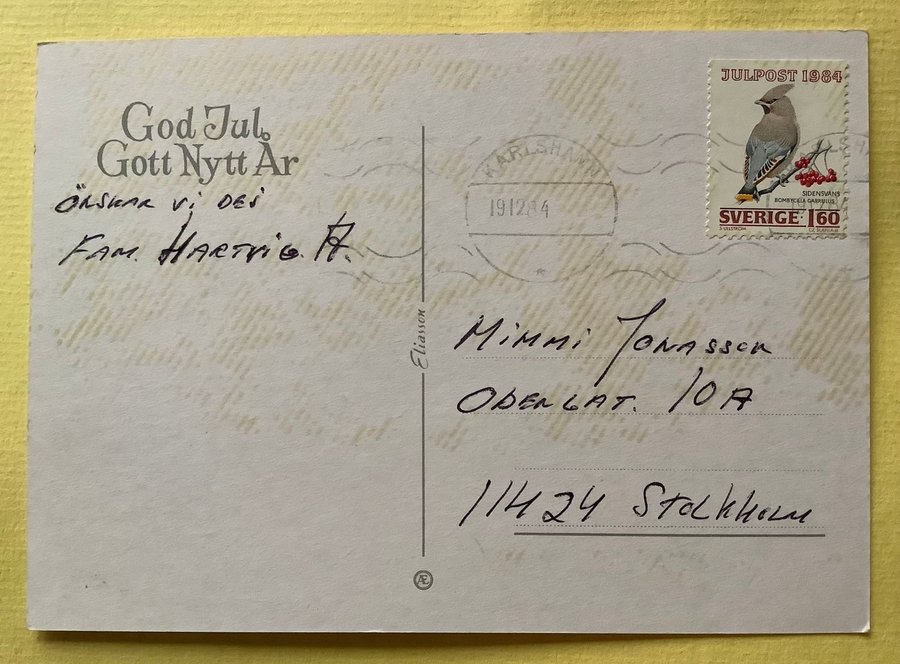 God Jul
Gott Nytt År
ÖNSKAR VI DEJ
FAM. HARTVIG A.
Eliasson
Æ
KARLSHAMN
19 12 84
JULPOST 1984
SIDENSVANS
BOMBYCILLA GARRULUS
SVERIGE 1.60
CZ. SLANIA SC
Mimmi Jonasson
ODENGAT. 10A
11424 Stockholm